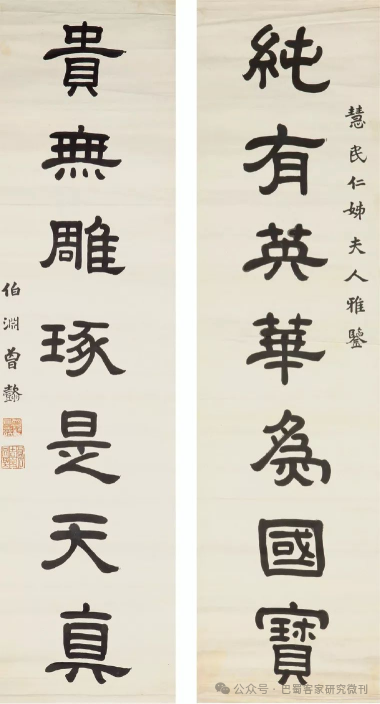 慧民仁姊夫人雅鑒
純有英華為國寶
貴無雕琢是天真
伯淵曾懿
公众号·巴蜀客家研究微刊